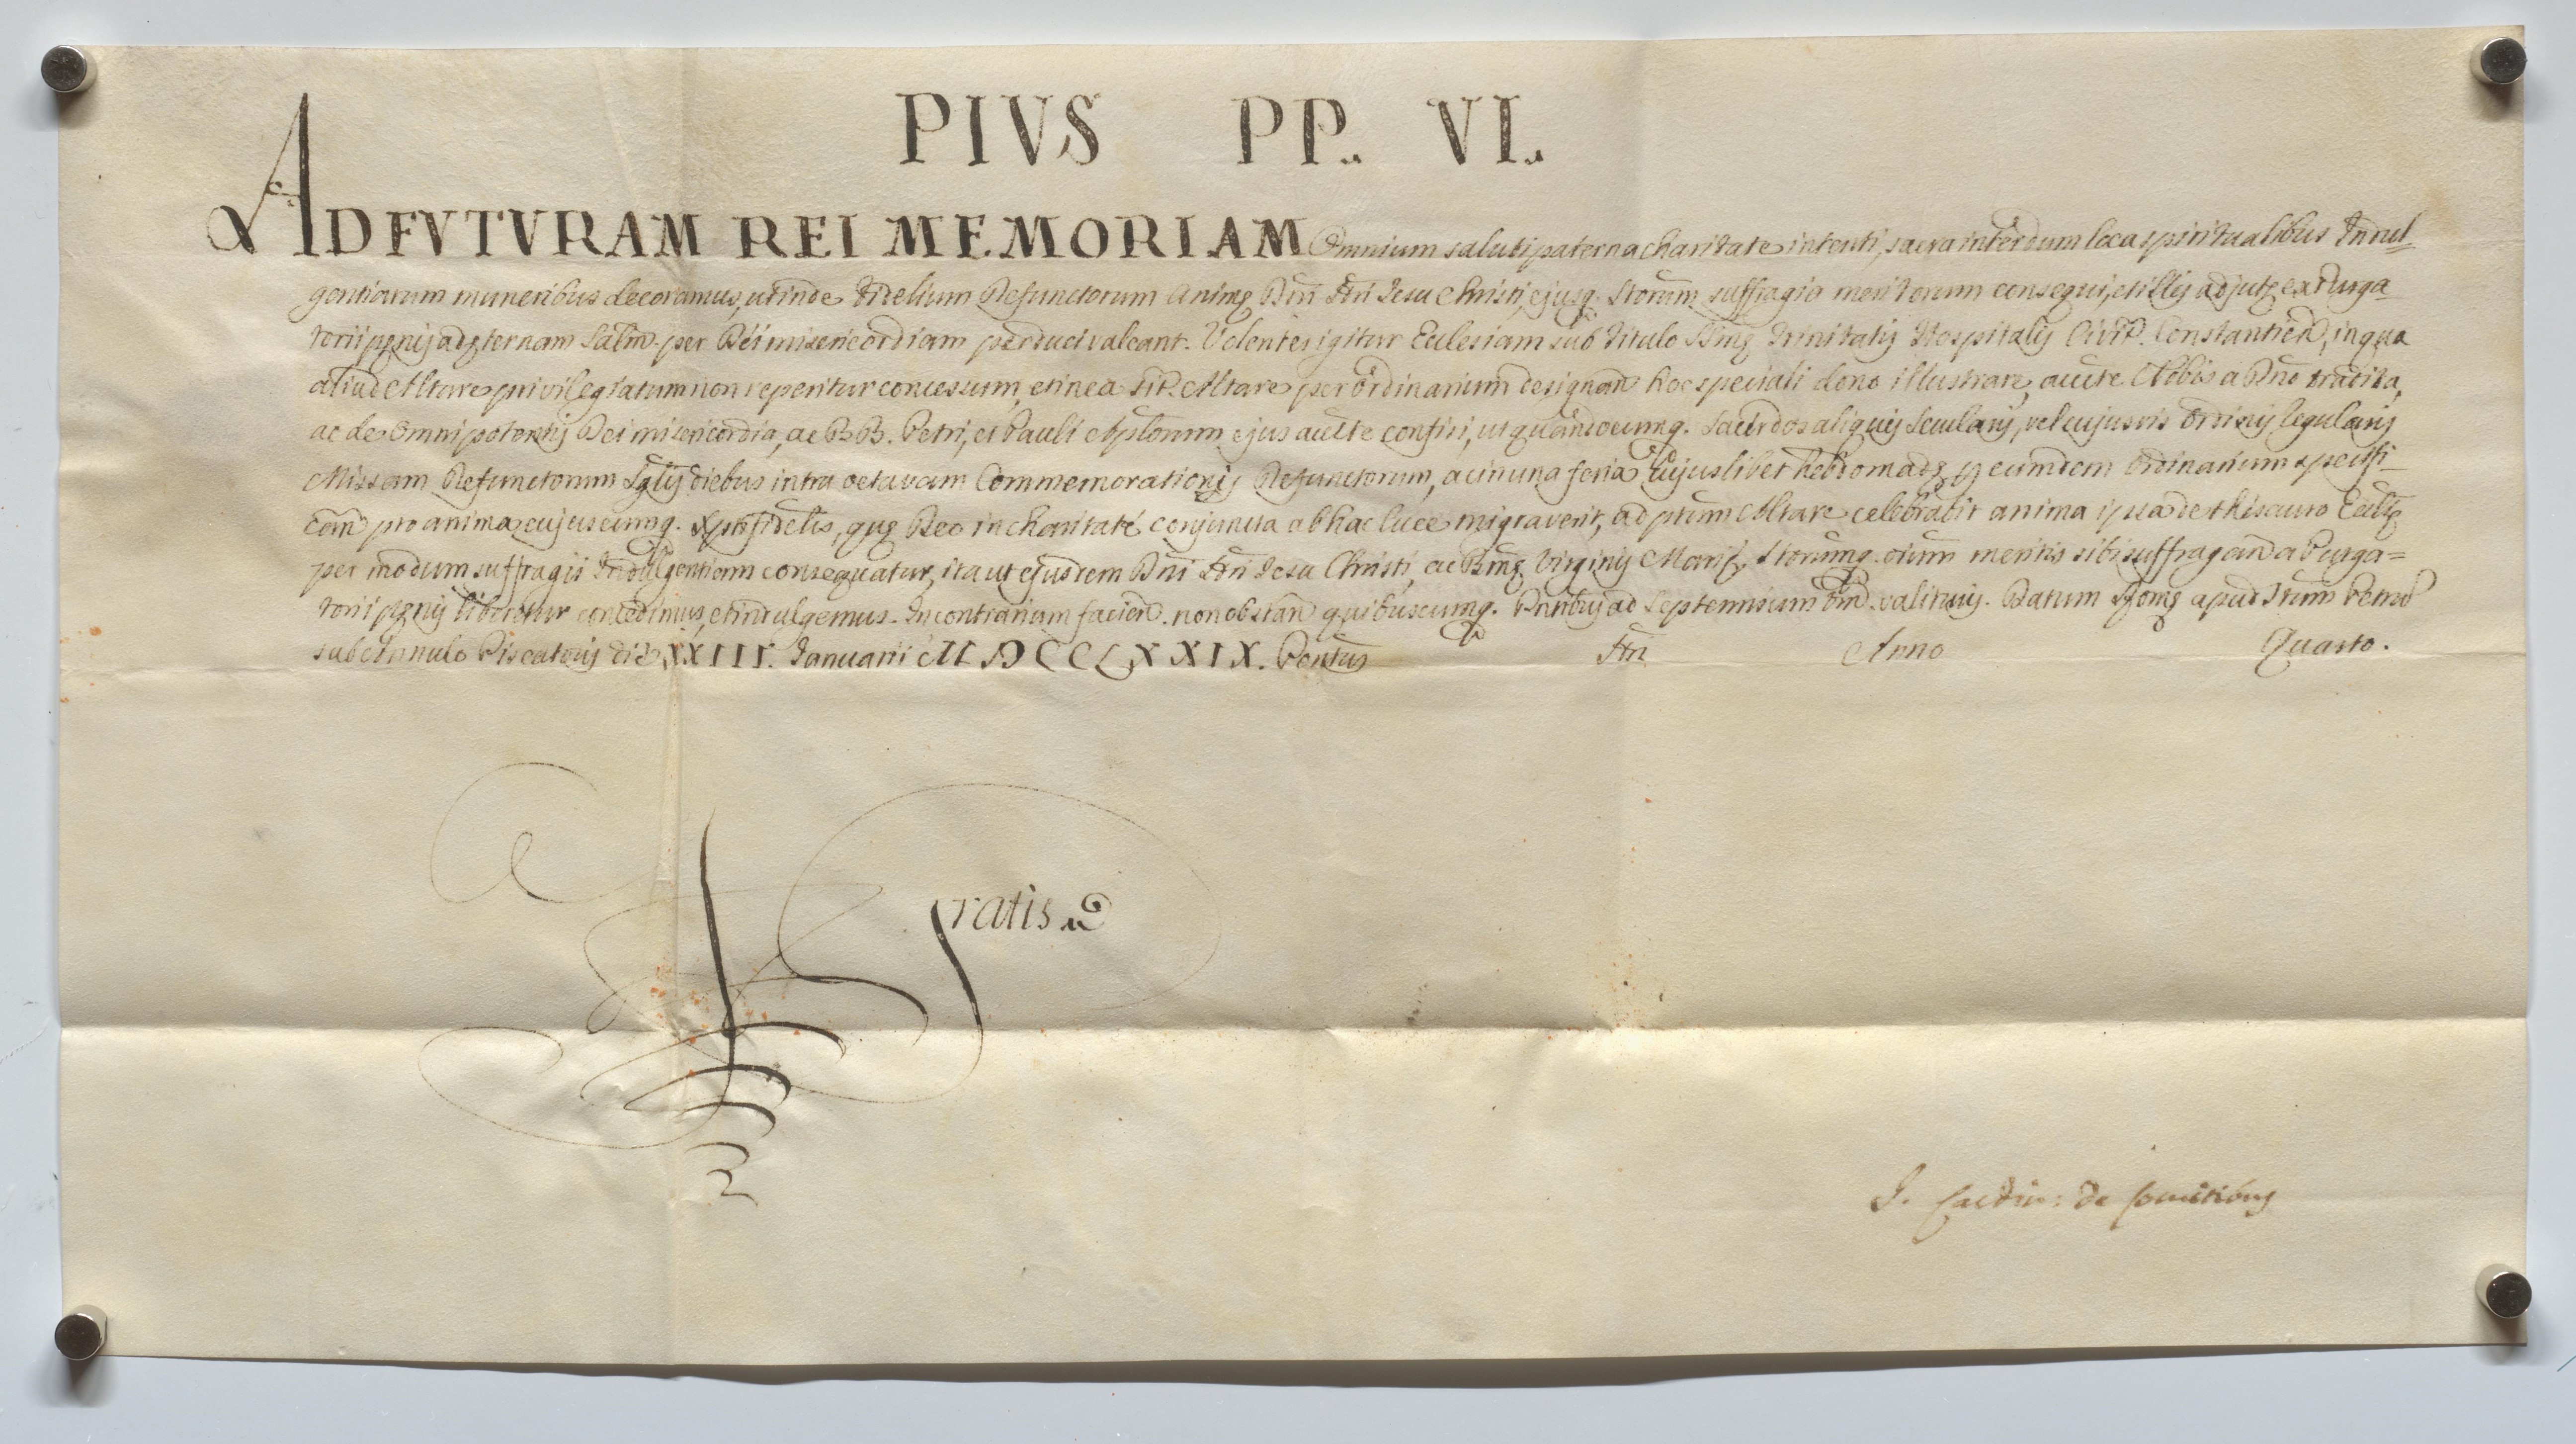 PIVS PP. VI.
AD FVTVRAM REI MEMORIAM Omnium saluti paterna charitate intenti, sacra interdum loca spiritualibus Indul-
gentiarum muneribus decoramus, ut inde Fidelium Defunctorum Animę Dñi Ñri Jesu Christi, ejusq. Storum suffragia meritorum consequi, et illis adjutę ex Purga-
torii pęnis ad ęternam Salm. per Dei misericordiam perduci valeant. Volentes igitur Ecclesiam sub Titulo Smę Trinitatis Hospitalis Civit. Constantien, in qua
aliud Altare privilegiatum non reperitur concessum, et in ea sit. Altare per ordinarium designan hoc speciali dono illustrare, aucte Nobis a Dño tradita,
ac de Omnipotentis Dei misericordia, ac BB. Petri, et Pauli Aplorum ejus aucte confisi, ut quandocumq. Sacerdos aliquis Secularis, vel cujusvis Ordinis Regularis
Missam Defunctorum Sglis diebus intra octavam Commemorationis Defunctorum, ac in una feria cujuslibet hebdomadę p eumdem Ordinarium specifi-
can pro anima cujuscumq. Xpifidelis, quę Deo in charitate conjuncta ab hac luce migraverit, ad ptum Altare celebrabit anima ipsa de thesauro Eccłę
per modum suffragii Indulgentiam consequatur, ita ut ejusdem Dñi Ñri Jesu Christi, ac Bmę Virginis Marię, Storumq. oium meritis sibi suffragan a Purga=
torii pęnis liberetur concedimus, et indulgemus. In contrarium facien. non obstan quibuscumq. Pñtibus ad Septennium tm̃ valituris. Datum Romę apud Stum Petrum
sub Annulo Piscatoris die XXIII. Januarii MDCCLXXIX. Pontus Ñri Anno Quarto.
Gratis
I. Cardin: de Comitibus